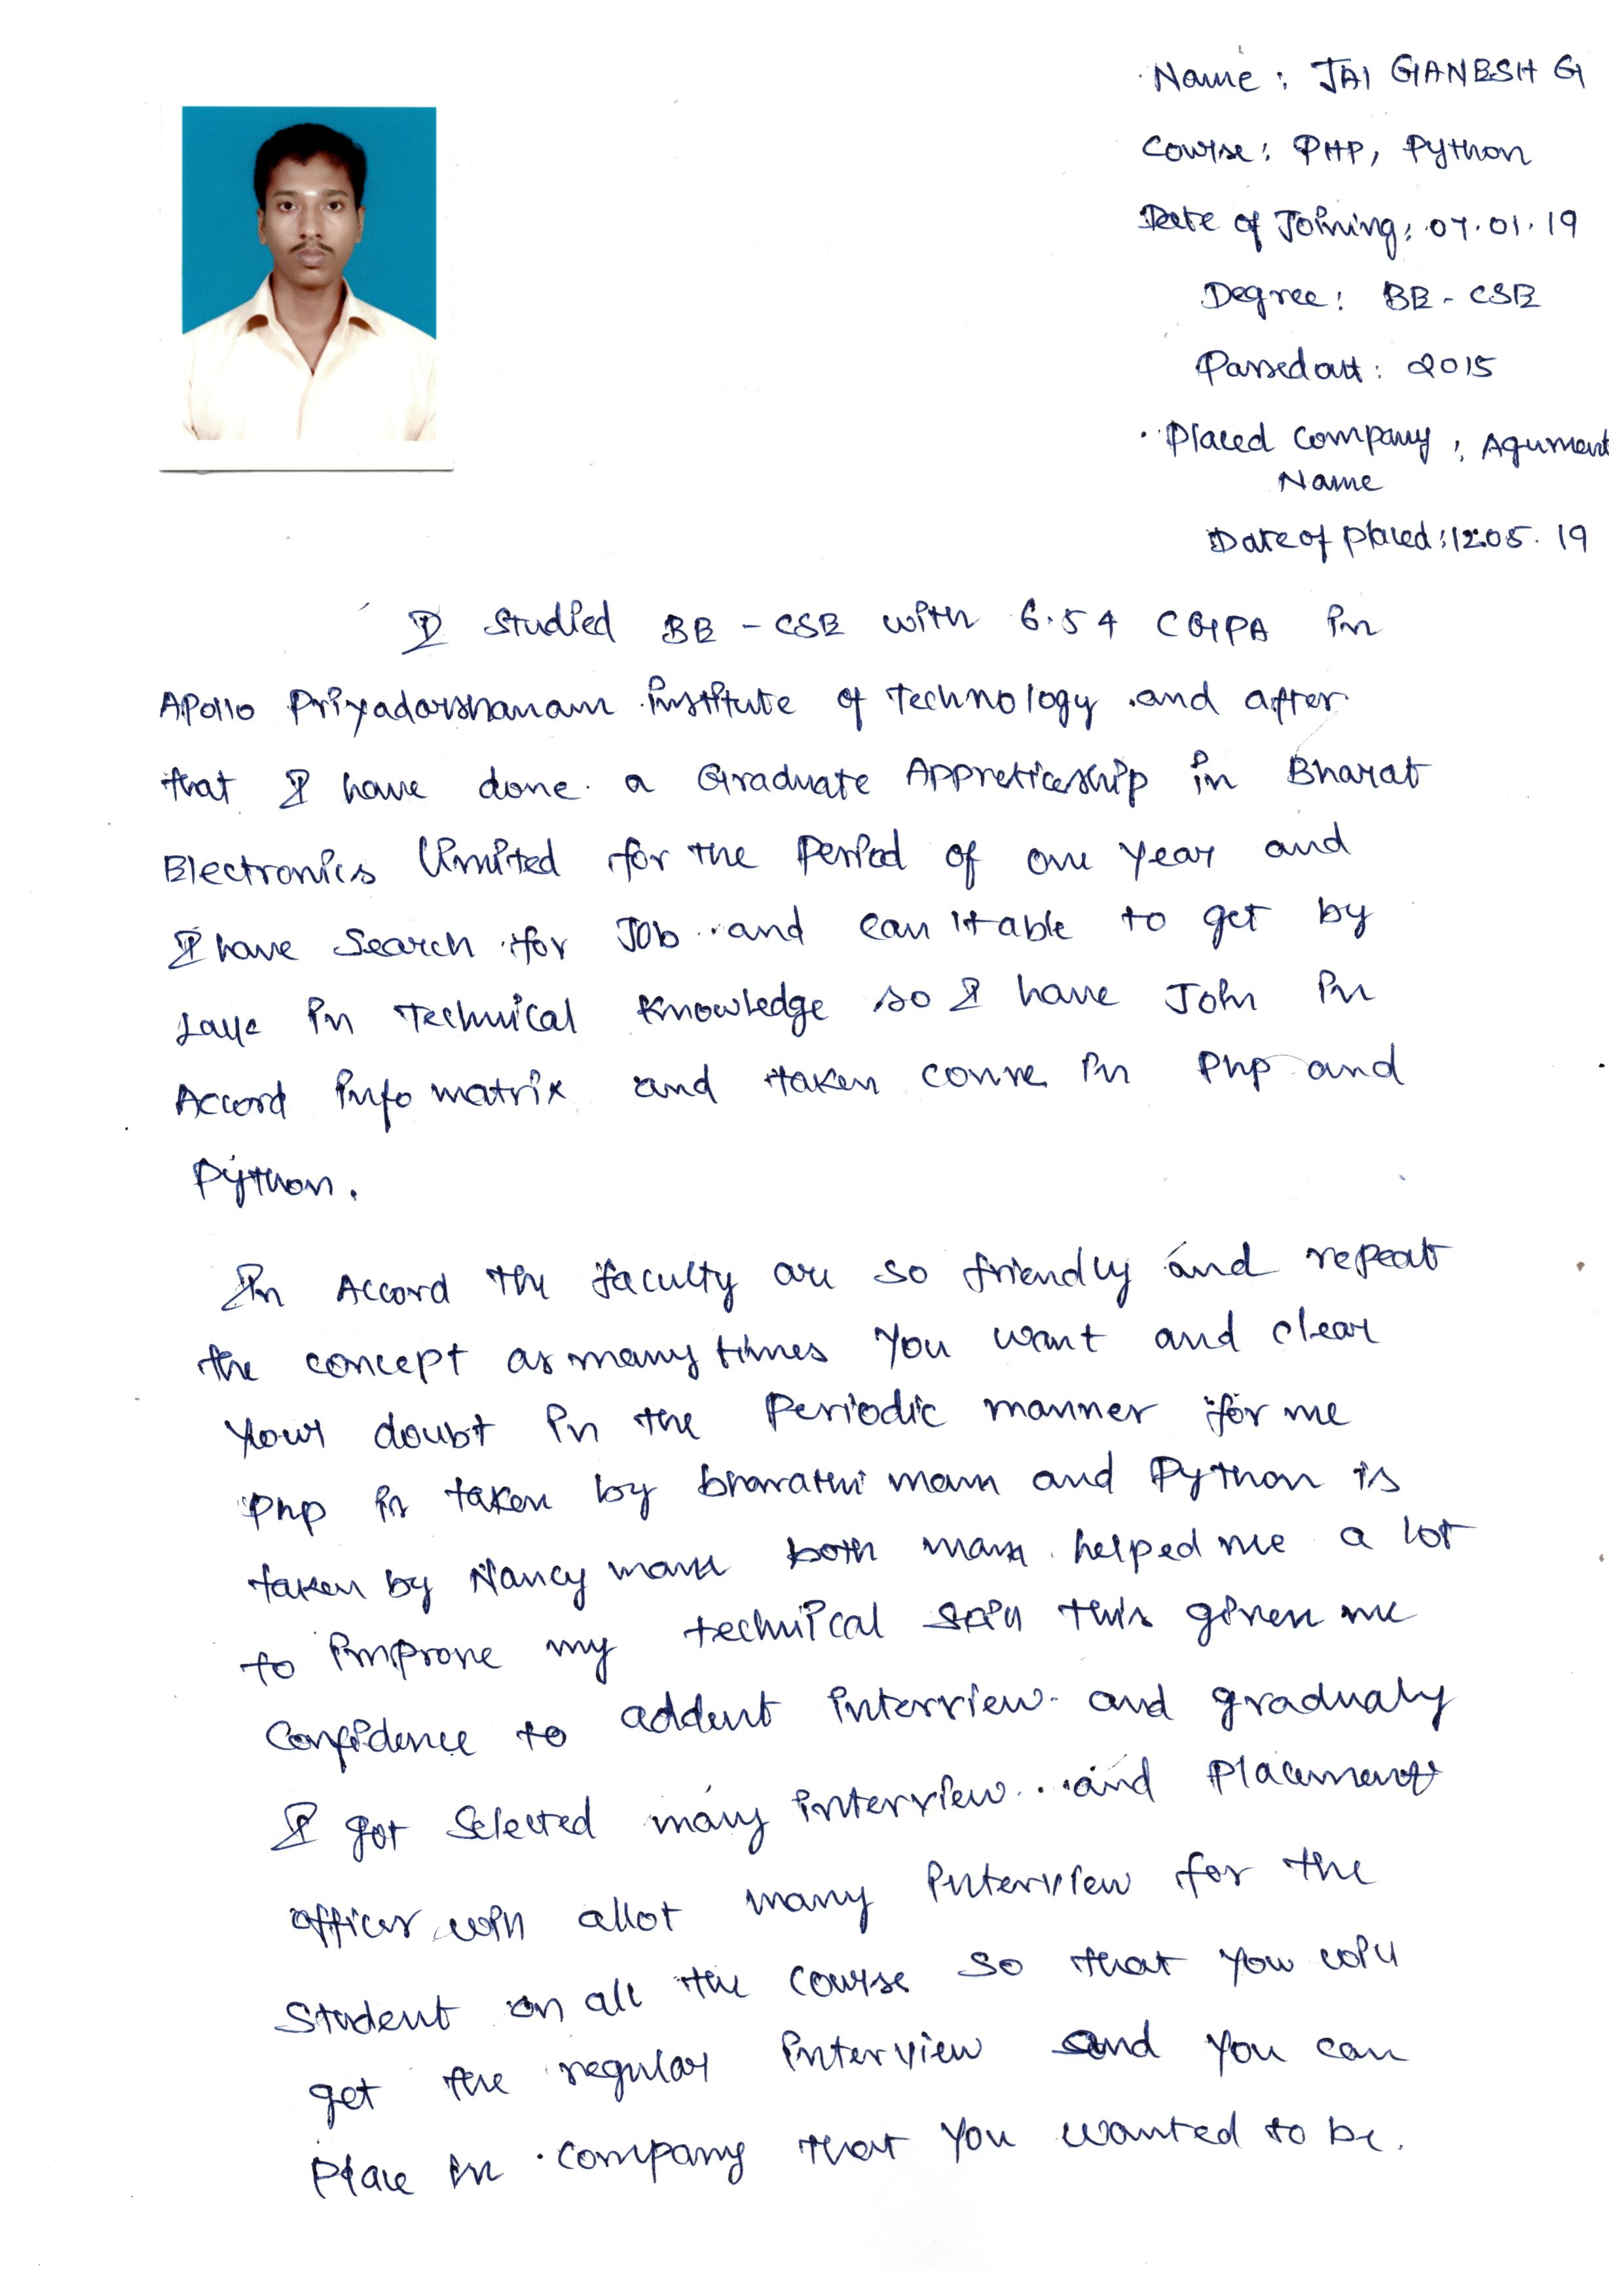 Name : JAI GANESH G
Course : PHP, Python
Date of Joining : 07.01.19
Degree : BE - CSE
Passedout : 2015
Placed Company : Agument
Name
Date of placed : 12.05.19
I studied BE - CSE with 6.54 CGPA in
Apollo Priyadarshanam institute of technology and after
that I have done a Graduate Appreticeship in Bharat
Electronics limited for the period of one year and
I have Search for Job and can it able to get by
in Technical knowledge so I have John in
Accord info matrix and taken in Php and
Python.
In Accord the faculty are so friendly and repeat
the concept as many times you want and clear
your doubt in the Periodic manner for me
Php is taken by bharathi mam and Python is
taken by Nancy mam both mam helped me a lot
to improve my technical this given me
Confidence to addent interview and gradualy
I got selected many interview and Placement
officer will allot many interview for the
Student on all the course so that you will
get the regular interview and you can
place in company that you wanted to be.